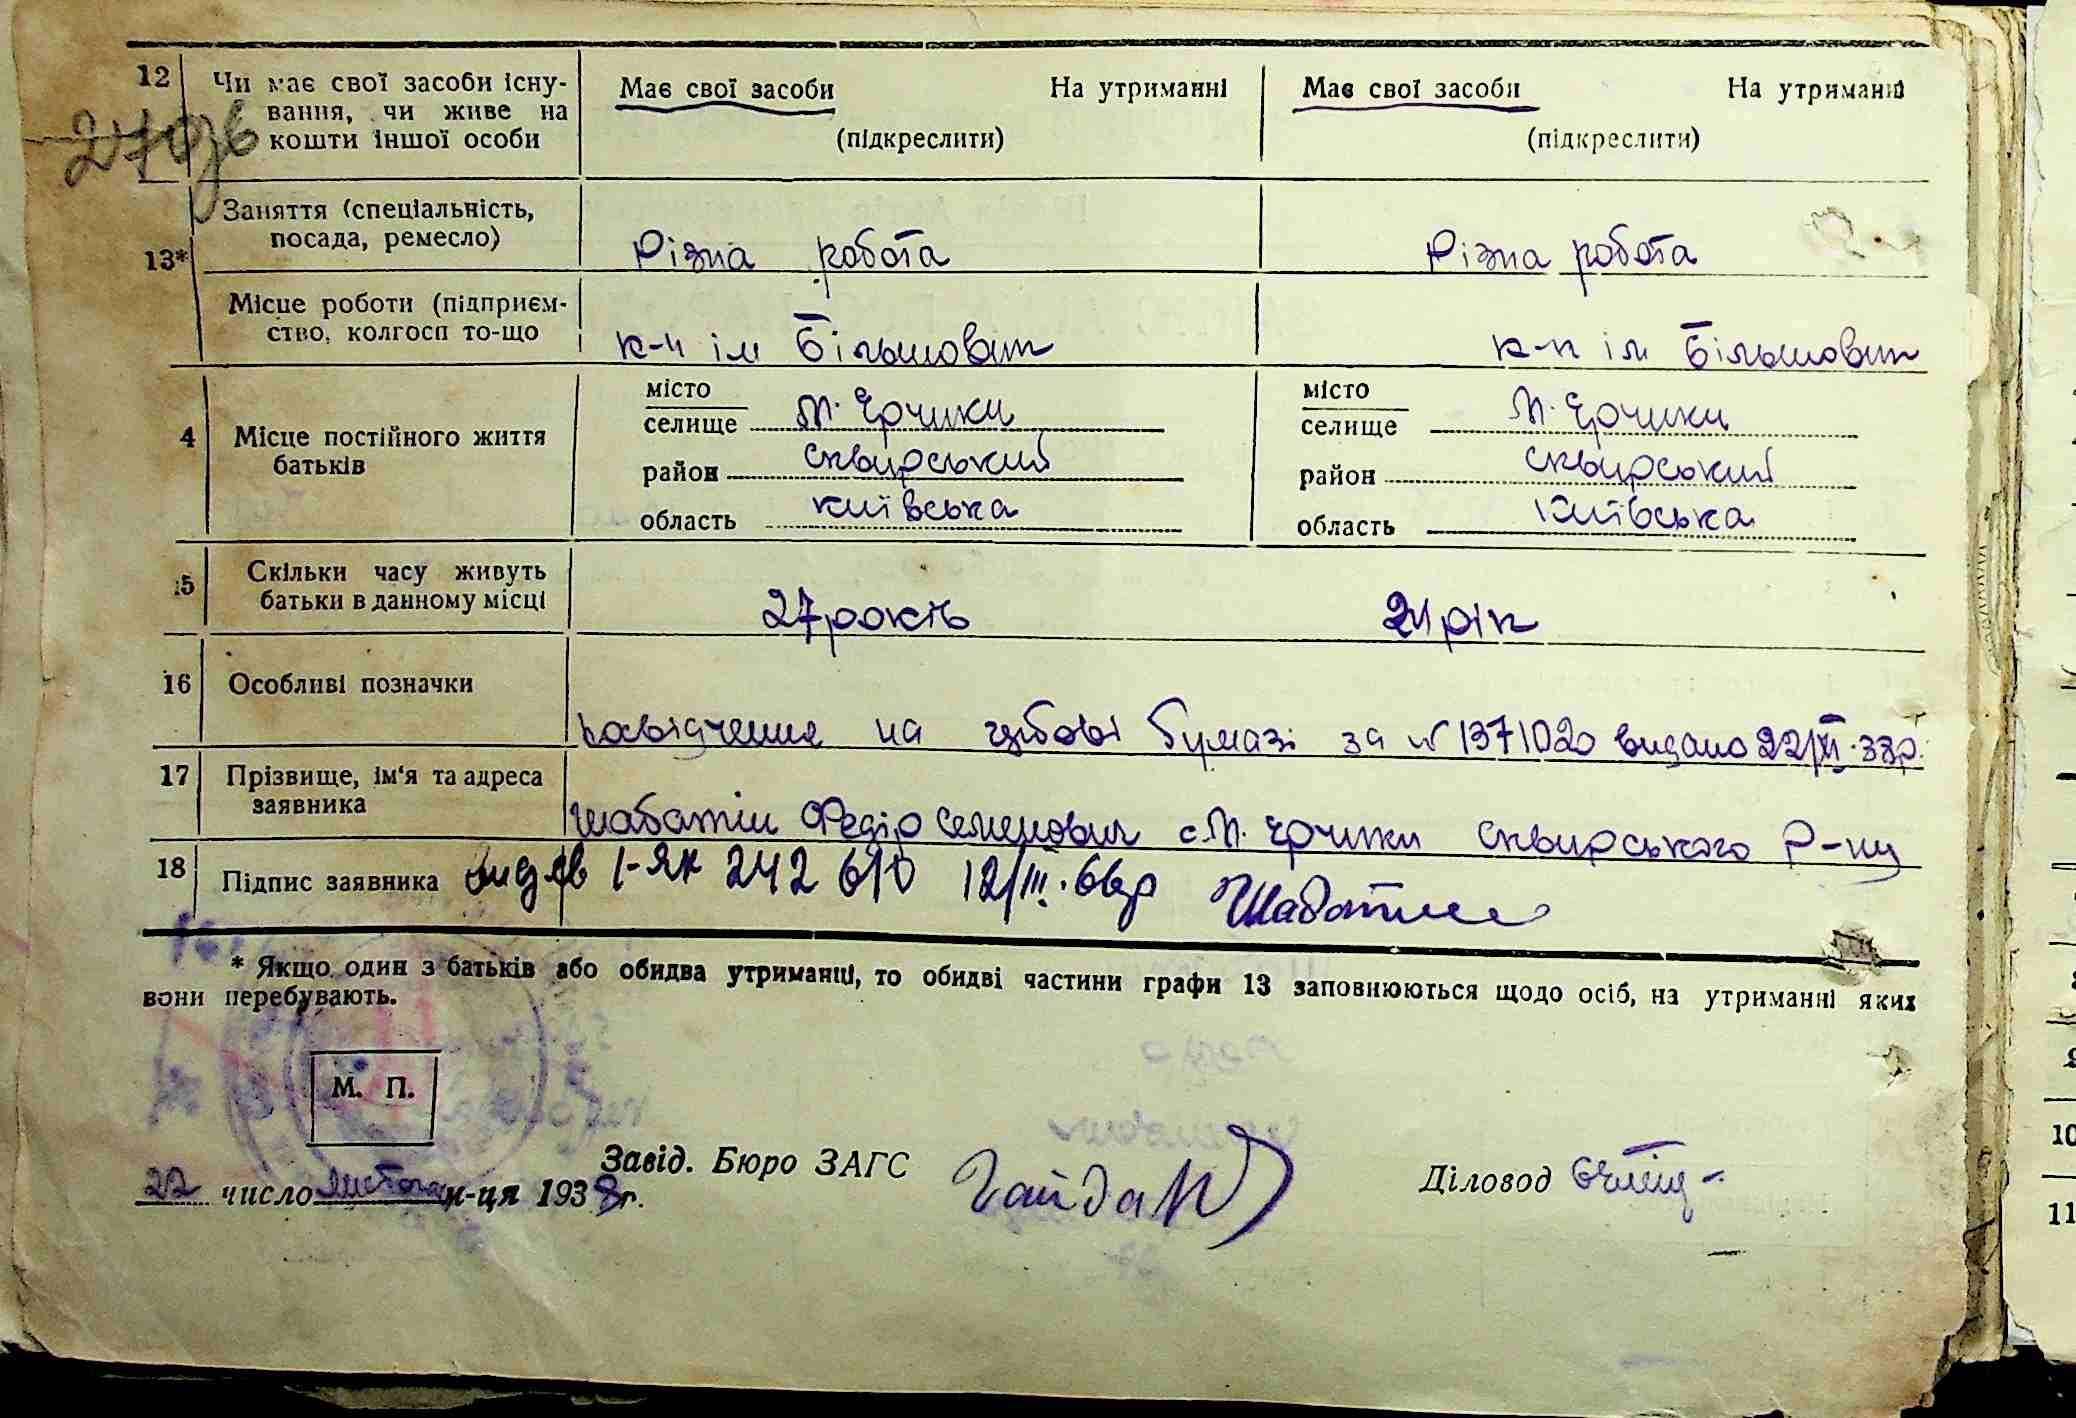 12 Чи має свої засоби існу-
вання, чи живе на
кошти іншої особи
Має свої засоби На утриманні
(підкреслити)
Має свої засоби На утриманні
(підкреслити)
13* Заняття (спеціальність,
посада, ремесло)
Різна робота
Різна робота
Місце роботи (підприєм-
ство, колгосп то-що
к-п ім Більшовик
к-п ім Більшовик
4 Місце постійного життя
батьків
місто
селище М. Єрчики
район Сквирський
область Київська
місто
селище М. Єрчики
район Сквирський
область Київська
15 Скільки часу живуть
батьки в данному місці
27 років
21 рік
16 Особливі позначки
посвідчення на гербові бумазі за № 1371020 видано 22/XI.38р.
17 Прізвище, ім'я та адреса
заявника
Шабатин Федір Семенович с. М. Єрчики Сквирського р-ну
18 Підпис заявника
I-ЯК 242610 12/III.66р
Шабатин
* Якщо один з батьків або обидва утриманці, то обидві частини графи 13 заповнюються щодо осіб, на утриманні яких
вони перебувають.
М. П.
Завід. Бюро ЗАГС
Діловод
22 число листопад м-ця 1938 г.
10
11